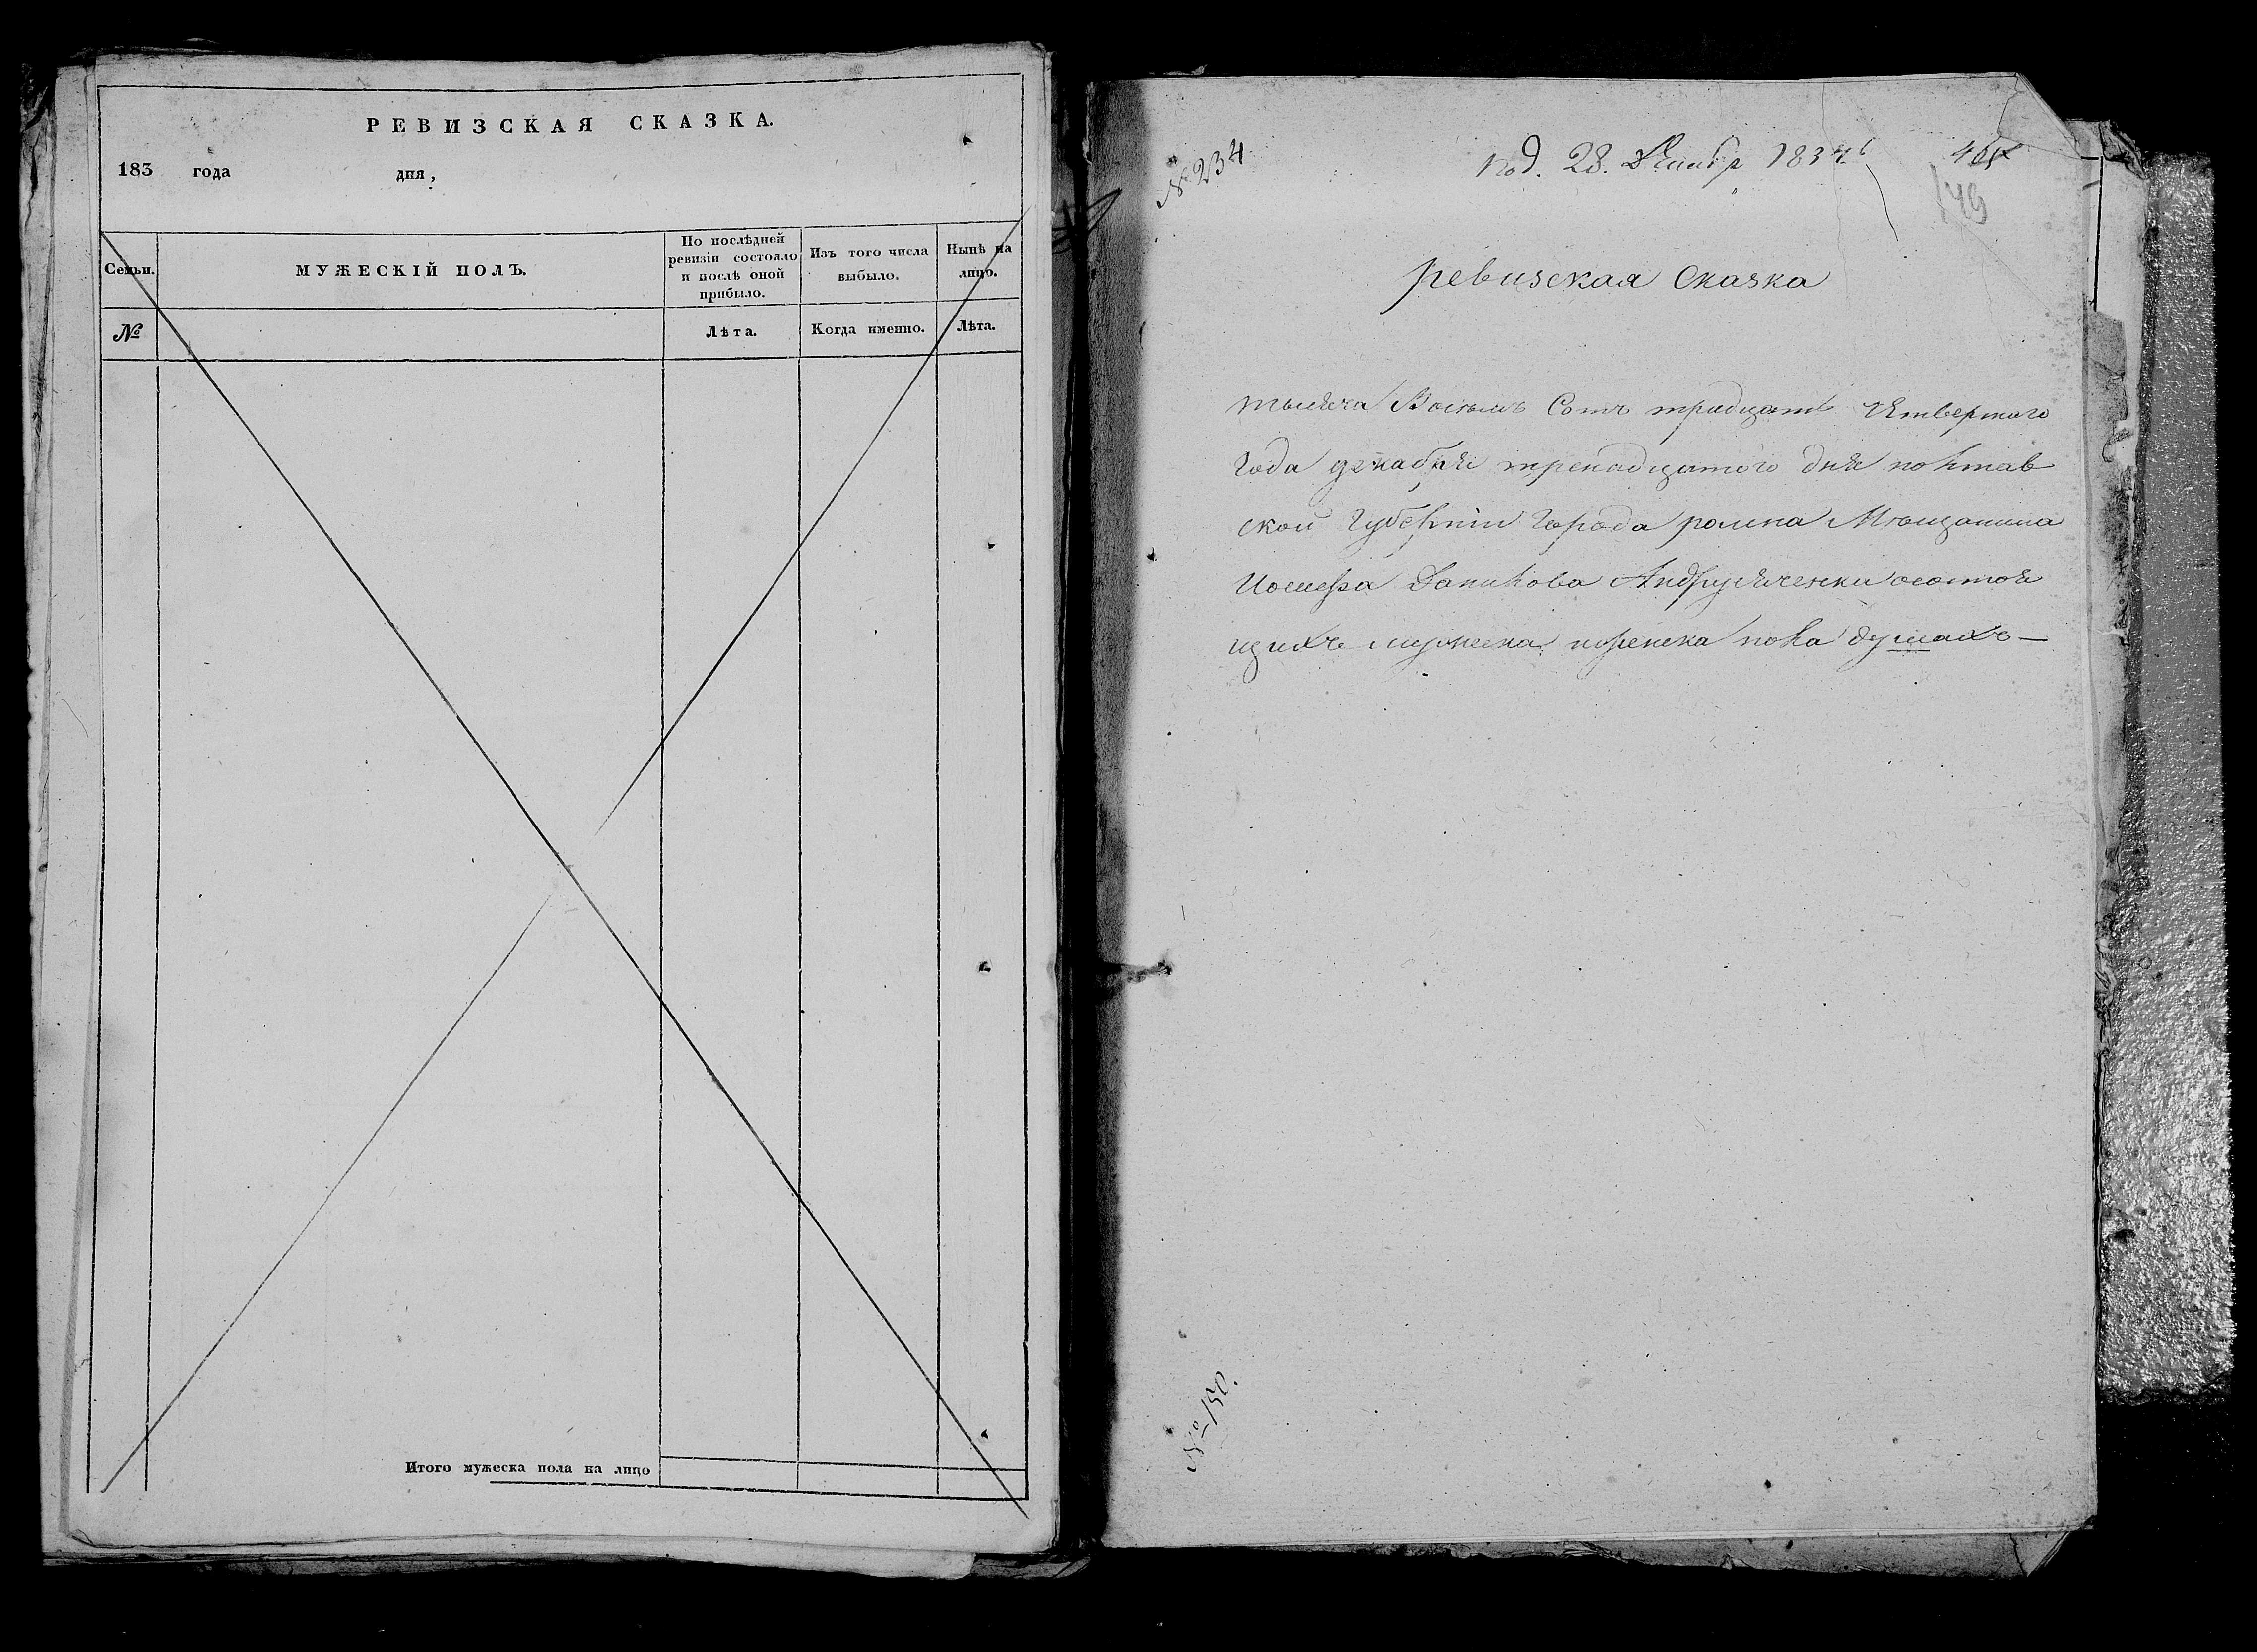 РЕВИЗСКАЯ СКАЗКА.
183 года дня,
Семьи.
МУЖЕСКІЙ ПОЛЪ.
По послѣдней
ревизіи состояло
и послѣ оной
прибыло.
Изъ того числа
выбыло.
Нынѣ на
лицо.
№
Лѣта.
Когда именно.
Лѣта.
Итого мужеска пола на лицо
№ 234
Под. 28. Декабр 1834
149
ревизская Сказка
тысяча Восемь Сотъ тридцать четвертого
Года декабря тренадцатого дня полтав
ской Губернии Города ромна Мещанина
Данилова Андрущенки состоя
щихъ мужеска иженска пола душахъ —
№ 150.